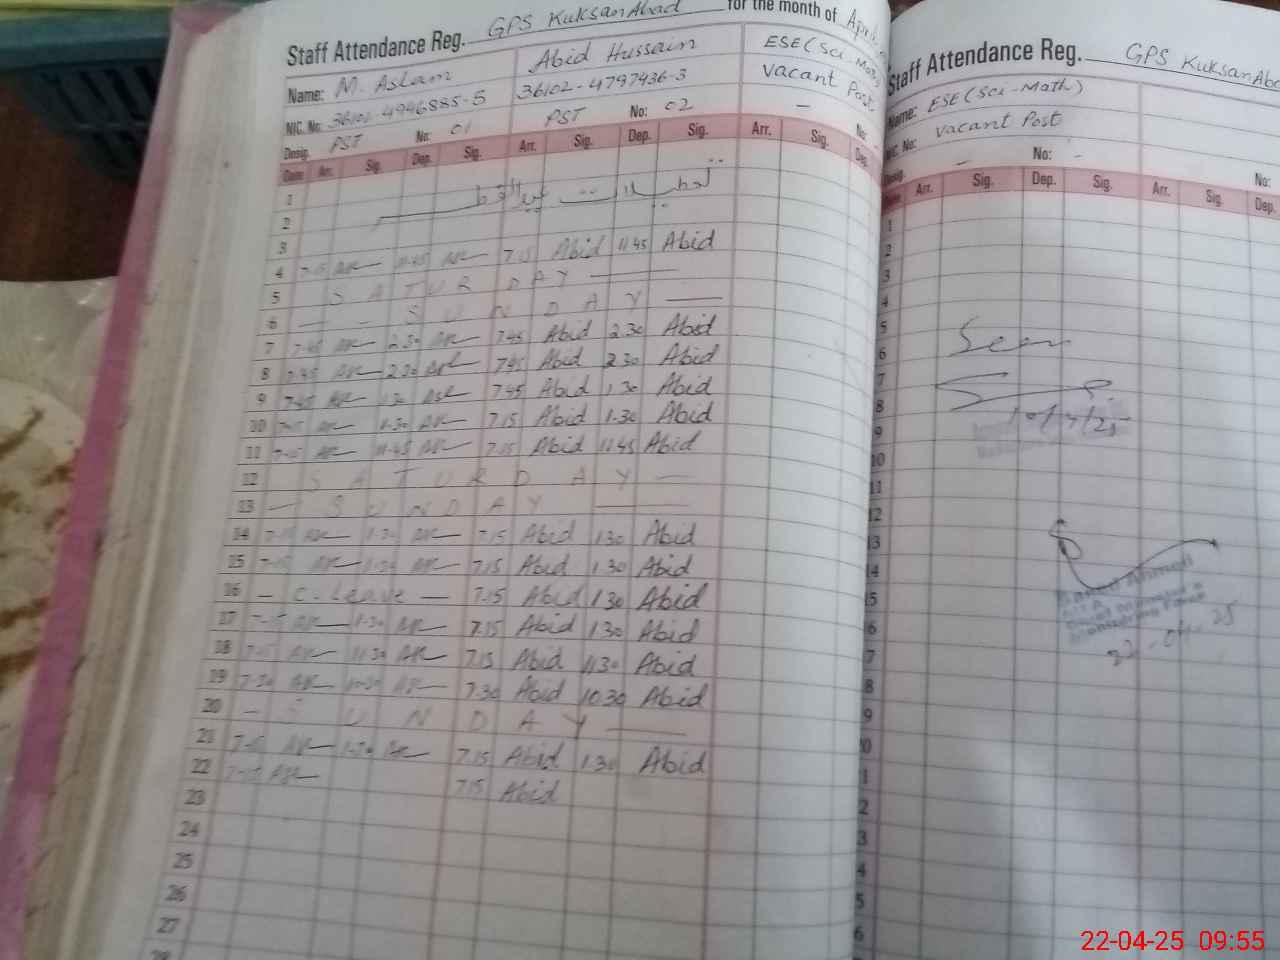 Staff Attendance Reg. GPS KuksanAbad for the month of April
Name: M. Aslam Abid Hussain ESE (Sci-Math)
NIC. No: 36102-4946885-5 36102-4797436-3 Vacant Post
Desig. PST No: 01 PST No: 02 – No:
Date Arr. Sig. Dep. Sig. Arr. Sig. Dep. Sig. Arr. Sig. Dep.
1
2 تعطیلات عیدالفطر
3
4 7-15 11-45 7.15 Abid 11.45 Abid
5 SATURDAY
6 SUNDAY
7 7-45 2.30 7.45 Abid 2.30 Abid
8 7.45 2.30 7.45 Abid 2.30 Abid
9 7.45 1.30 7.45 Abid 1.30 Abid
10 7-15 1.30 7.15 Abid 1.30 Abid
11 7-15 11-45 7.15 Abid 11.45 Abid
12 SATURDAY
13 – SUNDAY
14 7-15 1-30 7.15 Abid 1.30 Abid
15 7-15 1-30 7.15 Abid 1.30 Abid
16 – C. Leave – 7.15 Abid 1.30 Abid
17 7-15 1-30 7.15 Abid 1.30 Abid
18 7-15 11.30 7.15 Abid 11.30 Abid
19 7-30 10-30 7.30 Abid 10.30 Abid
20 – SUNDAY
21 7-15 1-30 7.15 Abid 1.30 Abid
22 7-15 7.15 Abid
23
24
25
26
27
28
Staff Attendance Reg. GPS KuksanAbad
Name: ESE (Sci-Math)
NIC. No: Vacant Post
Desig. – No: – No:
Date Arr. Sig. Dep. Sig. Arr. Sig. Dep.
1
2
3
4
5
6 Seen
7
8 10/4/25
9
10
11
12
13
14 Ahmed
15
16 22-04-25
17
18
19
20
21
22
23
24
25
26
22-04-25 09:55